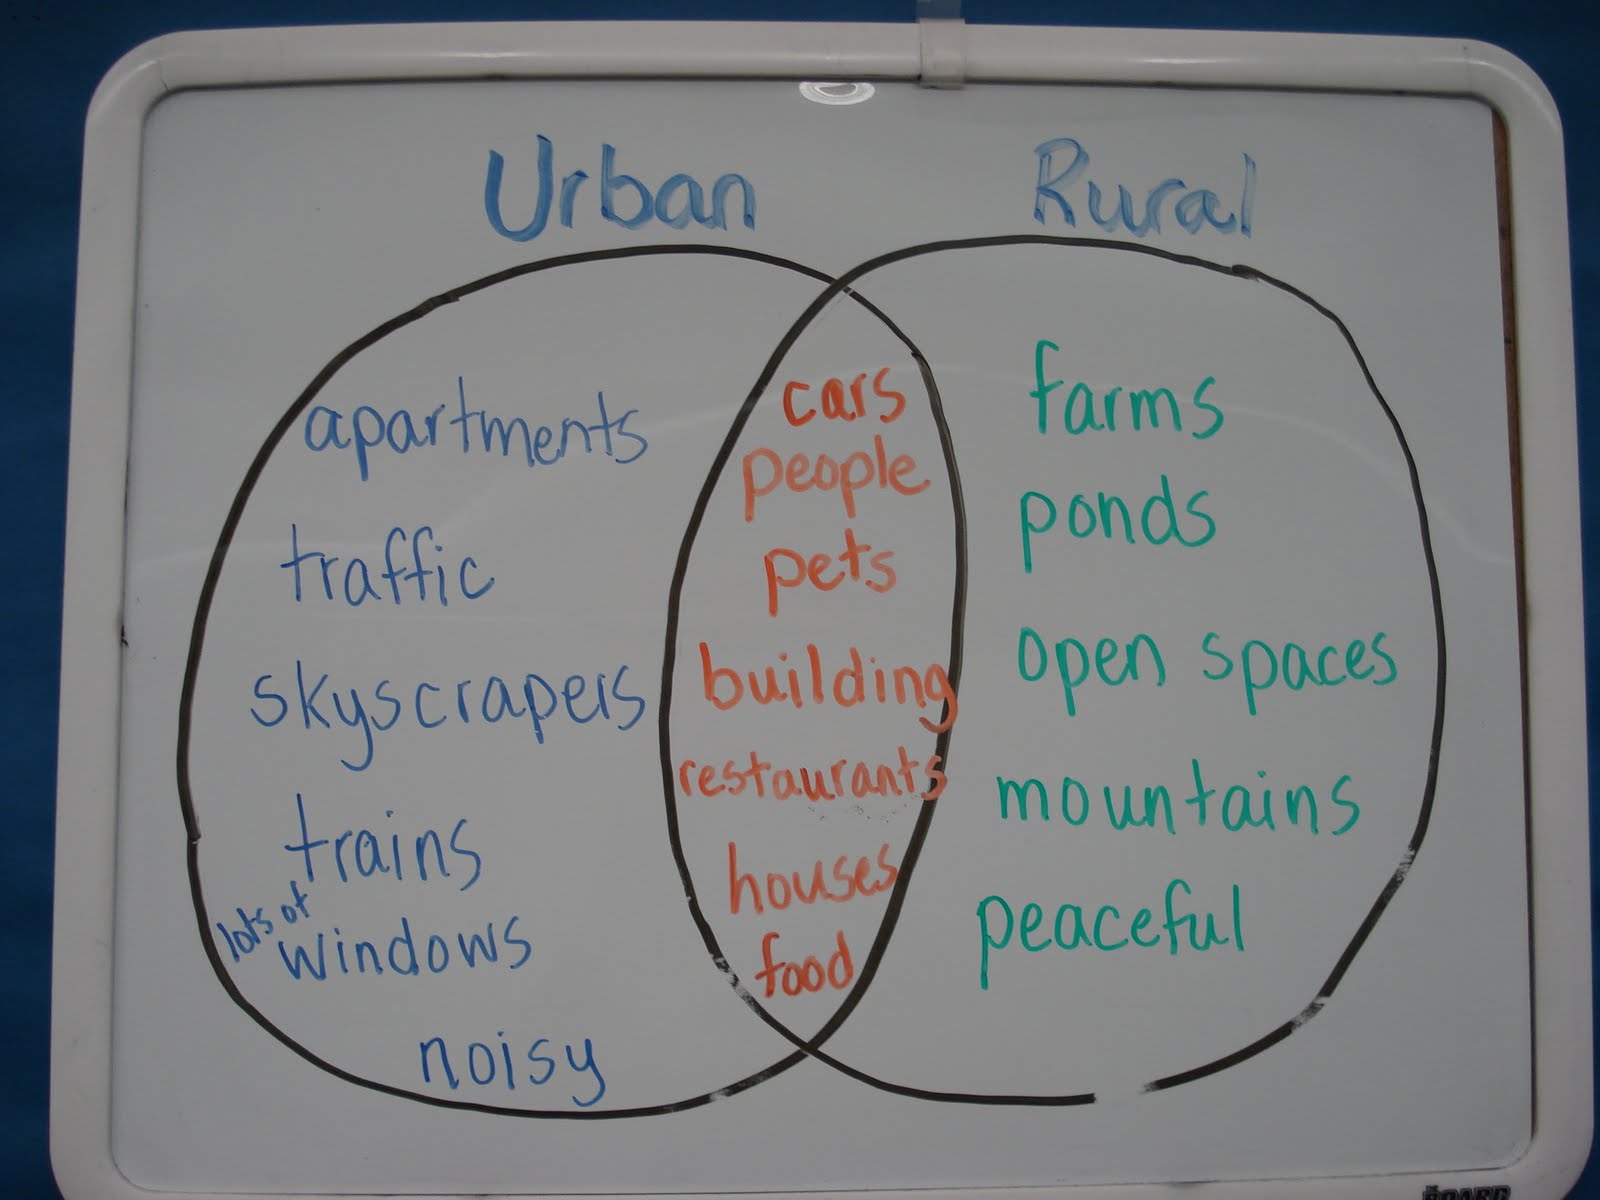 Urban
Rural
apartments
traffic
skyscrapers
trains
lots of
windows
noisy
cars
people
pets
building
restaurants
houses
food
farms
ponds
open spaces
mountains
peaceful